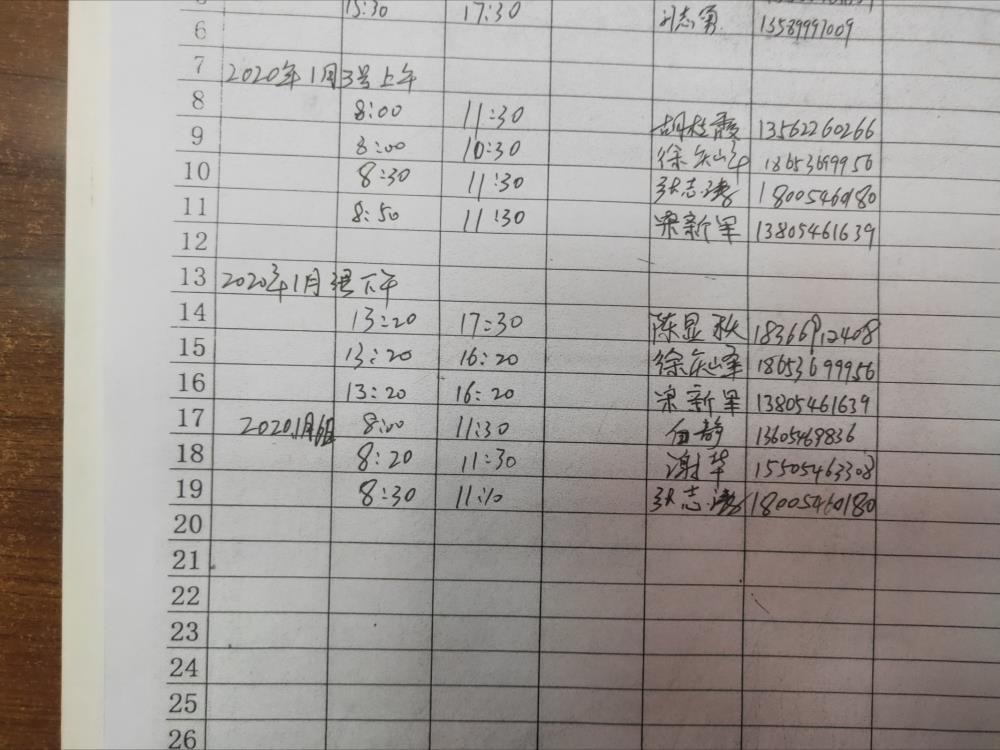 15:30 17:30 刘志勇 13589997009
6
7 2020年1月3号上午
8 8:00 11:30 胡桂霞 13562260266
9 8:00 10:30 徐庆峰 18653699956
10 8:30 11:30 张志涛 18005460180
11 8:50 11:30 梁新军 13805461639
12
13 2020年1月3号下午
14 13:20 17:30 陈显秋 18366912408
15 13:20 16:20 徐庆峰 18653699956
16 13:20 16:20 梁新军 13805461639
17 2020.1月6日 8:00 11:30 白静 13605469836
18 8:20 11:30 谢华 15505463308
19 8:30 11:10 张志涛 18005460180
20
21
22
23
24
25
26